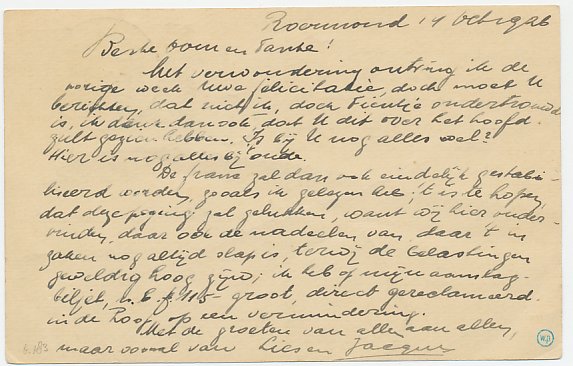 Roermond 14 Oct 1926
Beste Oom en Tante!
Met verwondering ontving ik de
vorige week Uwe felicitatie, doch moet U
berichten, dat niet ik, doch Fientje ondertrouwd
is, ik denk dan ook dat U dit over het hoofd
zult gezien hebben. Is bij U nog alles wel?
Hier is nog alles bij 't oude.
De franc zal dan ook eindelijk gestabi-
liseerd worden, zooals ik gelezen heb; 't is te hopen,
dat deze poging zal gelukken, want wij hier onder-
vinden daar ook de nadeelen van daar 't in
zaken nog altijd slap is, terwijl de belastingen
geweldig hoog zijn; ik heb op mijn aanslag-
biljet, f 115- groot, direct gereclameerd
in de Hoop op een vermindering.
Met de groeten van allen aan allen,
maar vooral van Lies en Jacques
W.P.